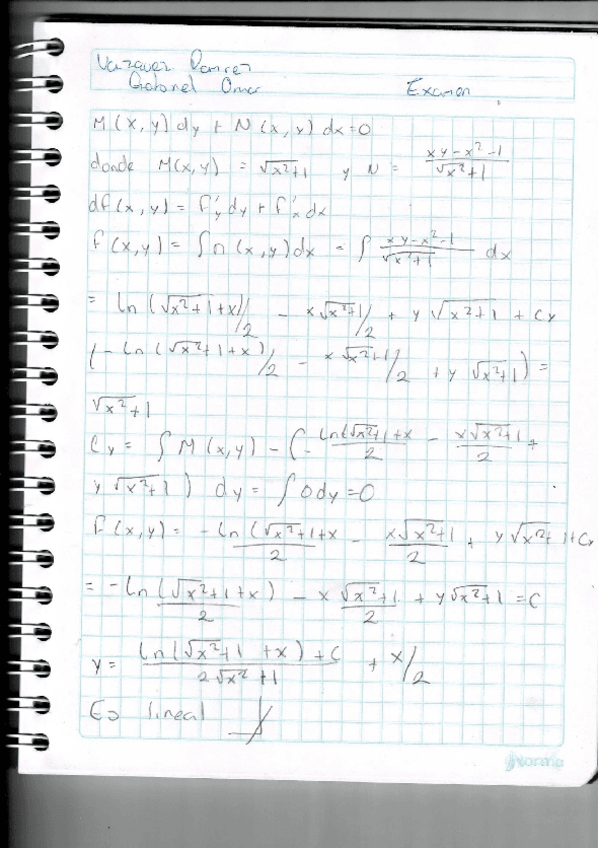 Vazquez Ramirez
Gabriel Omar Examen
M(x,y)dy + N(x,y)dx=0
donde M(x,y) = √x²+1 y N = xy-x²-1/√x²+1
df(x,y) = f'y dy + f'x dx
f(x,y) = ∫n(x,y)dx = ∫ xy-x²-1/√x²+1 dx
= ln(√x²+1+x)/2 - x√x²+1/2 + y√x²+1 + Cy
(-ln(√x²+1+x)/2 - x√x²+1/2 + y√x²+1) =
√x²+1
Cy = ∫M(x,y) - (-ln(√x²+1+x/2 - x√x²+1/2 +
y√x²+1) dy = ∫0dy=0
F(x,y) = -ln(√x²+1+x/2 - x√x²+1/2 + y√x²+1+Cy
= -ln(√x²+1+x)/2 - x√x²+1/2 + y√x²+1 = C
y = ln(√x²+1+x)+C/2√x²+1 + x/2
Es lineal
Norma